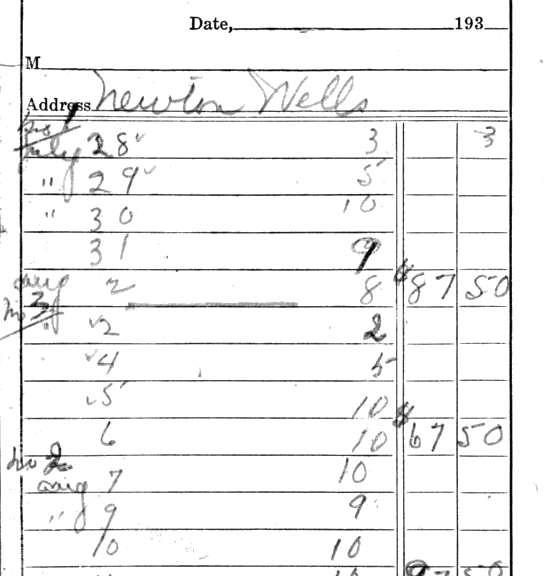 Date, 193
M
Address Newton Wells
July 28 3 3
" 29 5
" 30 10
31 9
Aug 2 8 $87 50
2 2
4 5
5 10
6 10 $67 50
No 2
Aug 7 10
" 9 9
10 10